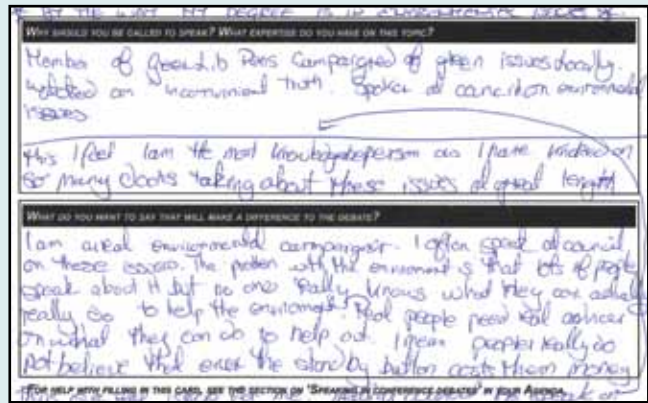 BY THE WAY MY DEGREE IS IN ENVIRONMENTAL
WHY SHOULD YOU BE CALLED TO SPEAK? WHAT EXPERTISE DO YOU HAVE ON THIS TOPIC?
Member of Green Lib Dems Campaigned of green issues locally.
on inconvinient truth. Spoken at council on environmental
issues
this I feel I am the most knowledgable person as I have knocked on
so many doors talking about these issues at great length
WHAT DO YOU WANT TO SAY THAT WILL MAKE A DIFFERENCE TO THE DEBATE?
I am a real environmental campaigner. I often speak at council
on these issues. The problem with the environment is that lots of people
speak about it but no one really knows what they can actually
really do to help the environment. Real people need real advice
on what they can do to help out. I mean people really do
not believe that even the standby button costs them money
FOR HELP WITH FILLING IN THIS CARD, SEE THE SECTION ON 'SPEAKING IN CONFERENCE DEBATES' IN YOUR AGENDA.